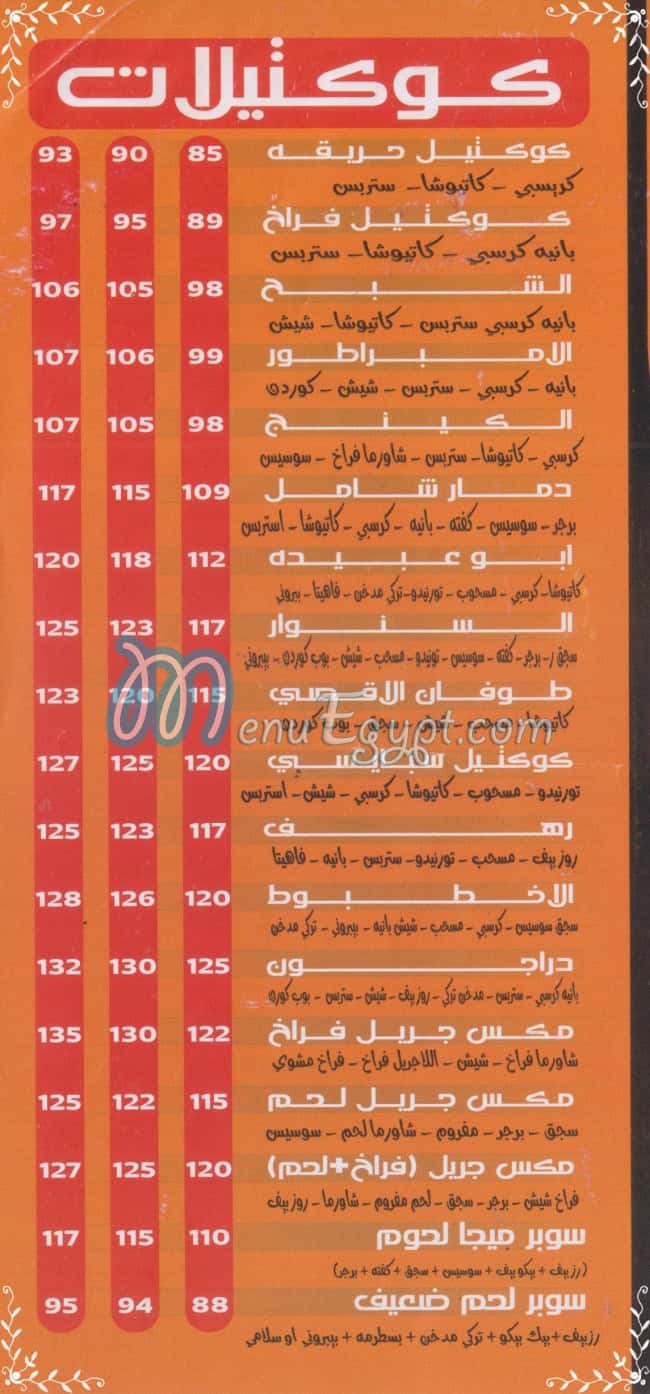 كوكتيلات
كوكتيل حريقه 85 90 93
كريسبي - كاتيوشا - ستربس
كوكتيل فراخ 89 95 97
بانيه كرسبي - كاتيوشا - ستربس
الشبح 98 105 106
بانيه كرسبي ستربس - كاتيوشا - شيش
الامبراطور 99 106 107
بانيه - كرسبي - ستربس - شيش - كوردن
الكينج 98 105 107
كرسبي - كاتيوشا - ستربس - شاورما فراخ - سوسيس
دمار شامل 109 115 117
برجر - سوسيس - كفته - بانيه - كرسبي - كاتيوشا - استربس
ابو عبيده 112 118 120
كاتيوشا - كرسبي - مسحوب - تورنيدو - تركي مدخن - فاهيتا - ببروني
السنوار 117 123 125
سجق ر - برجر - كفته - سوسيس - تونيدو - مسحب - شيش - بوب كوردن - بيبروني
طوفان الاقصي 115 120 123
كاتيوشا - مسحب - شيش - سجق - بوب كوردن
MenuEgypt.com
كوكتيل سبايسي 120 125 127
تورنيدو - مسحوب - كاتيوشا - كرسبي - شيش - استربس
رهف 117 123 125
روز بيف - مسحب - تورنيدو - ستربس - بانيه - فاهيتا
الاخطبوط 120 126 128
سجق سوسيس - كرسبي - مسحب - شيش بانيه - بيبروني - تركي مدخن
دراجون 125 130 132
بانيه كرسبي - ستربس - مدخن تركي - روز بيف - شيش - ستربس - بوب كوردن
مكس جريل فراخ 122 130 135
شاورما فراخ - شيش - اللاجريل فراخ - فراخ مشوي
مكس جريل لحم 115 122 125
سجق - برجر - مفروم - شاورما لحم - سوسيس
مكس جريل (فراخ+لحم) 120 125 127
فراخ شيش - برجر - سجق - لحم مفروم - شاورما - روز بيف
سوبر ميجا لحوم 110 115 117
(رز بيف + بيكو بيف + سوسيس + سجق + كفته + برجر)
سوبر لحم ضعيف 88 94 95
رزبيف + بيك بيكو + تركي مدخن + بسطرمه + بيبروني او سلامي